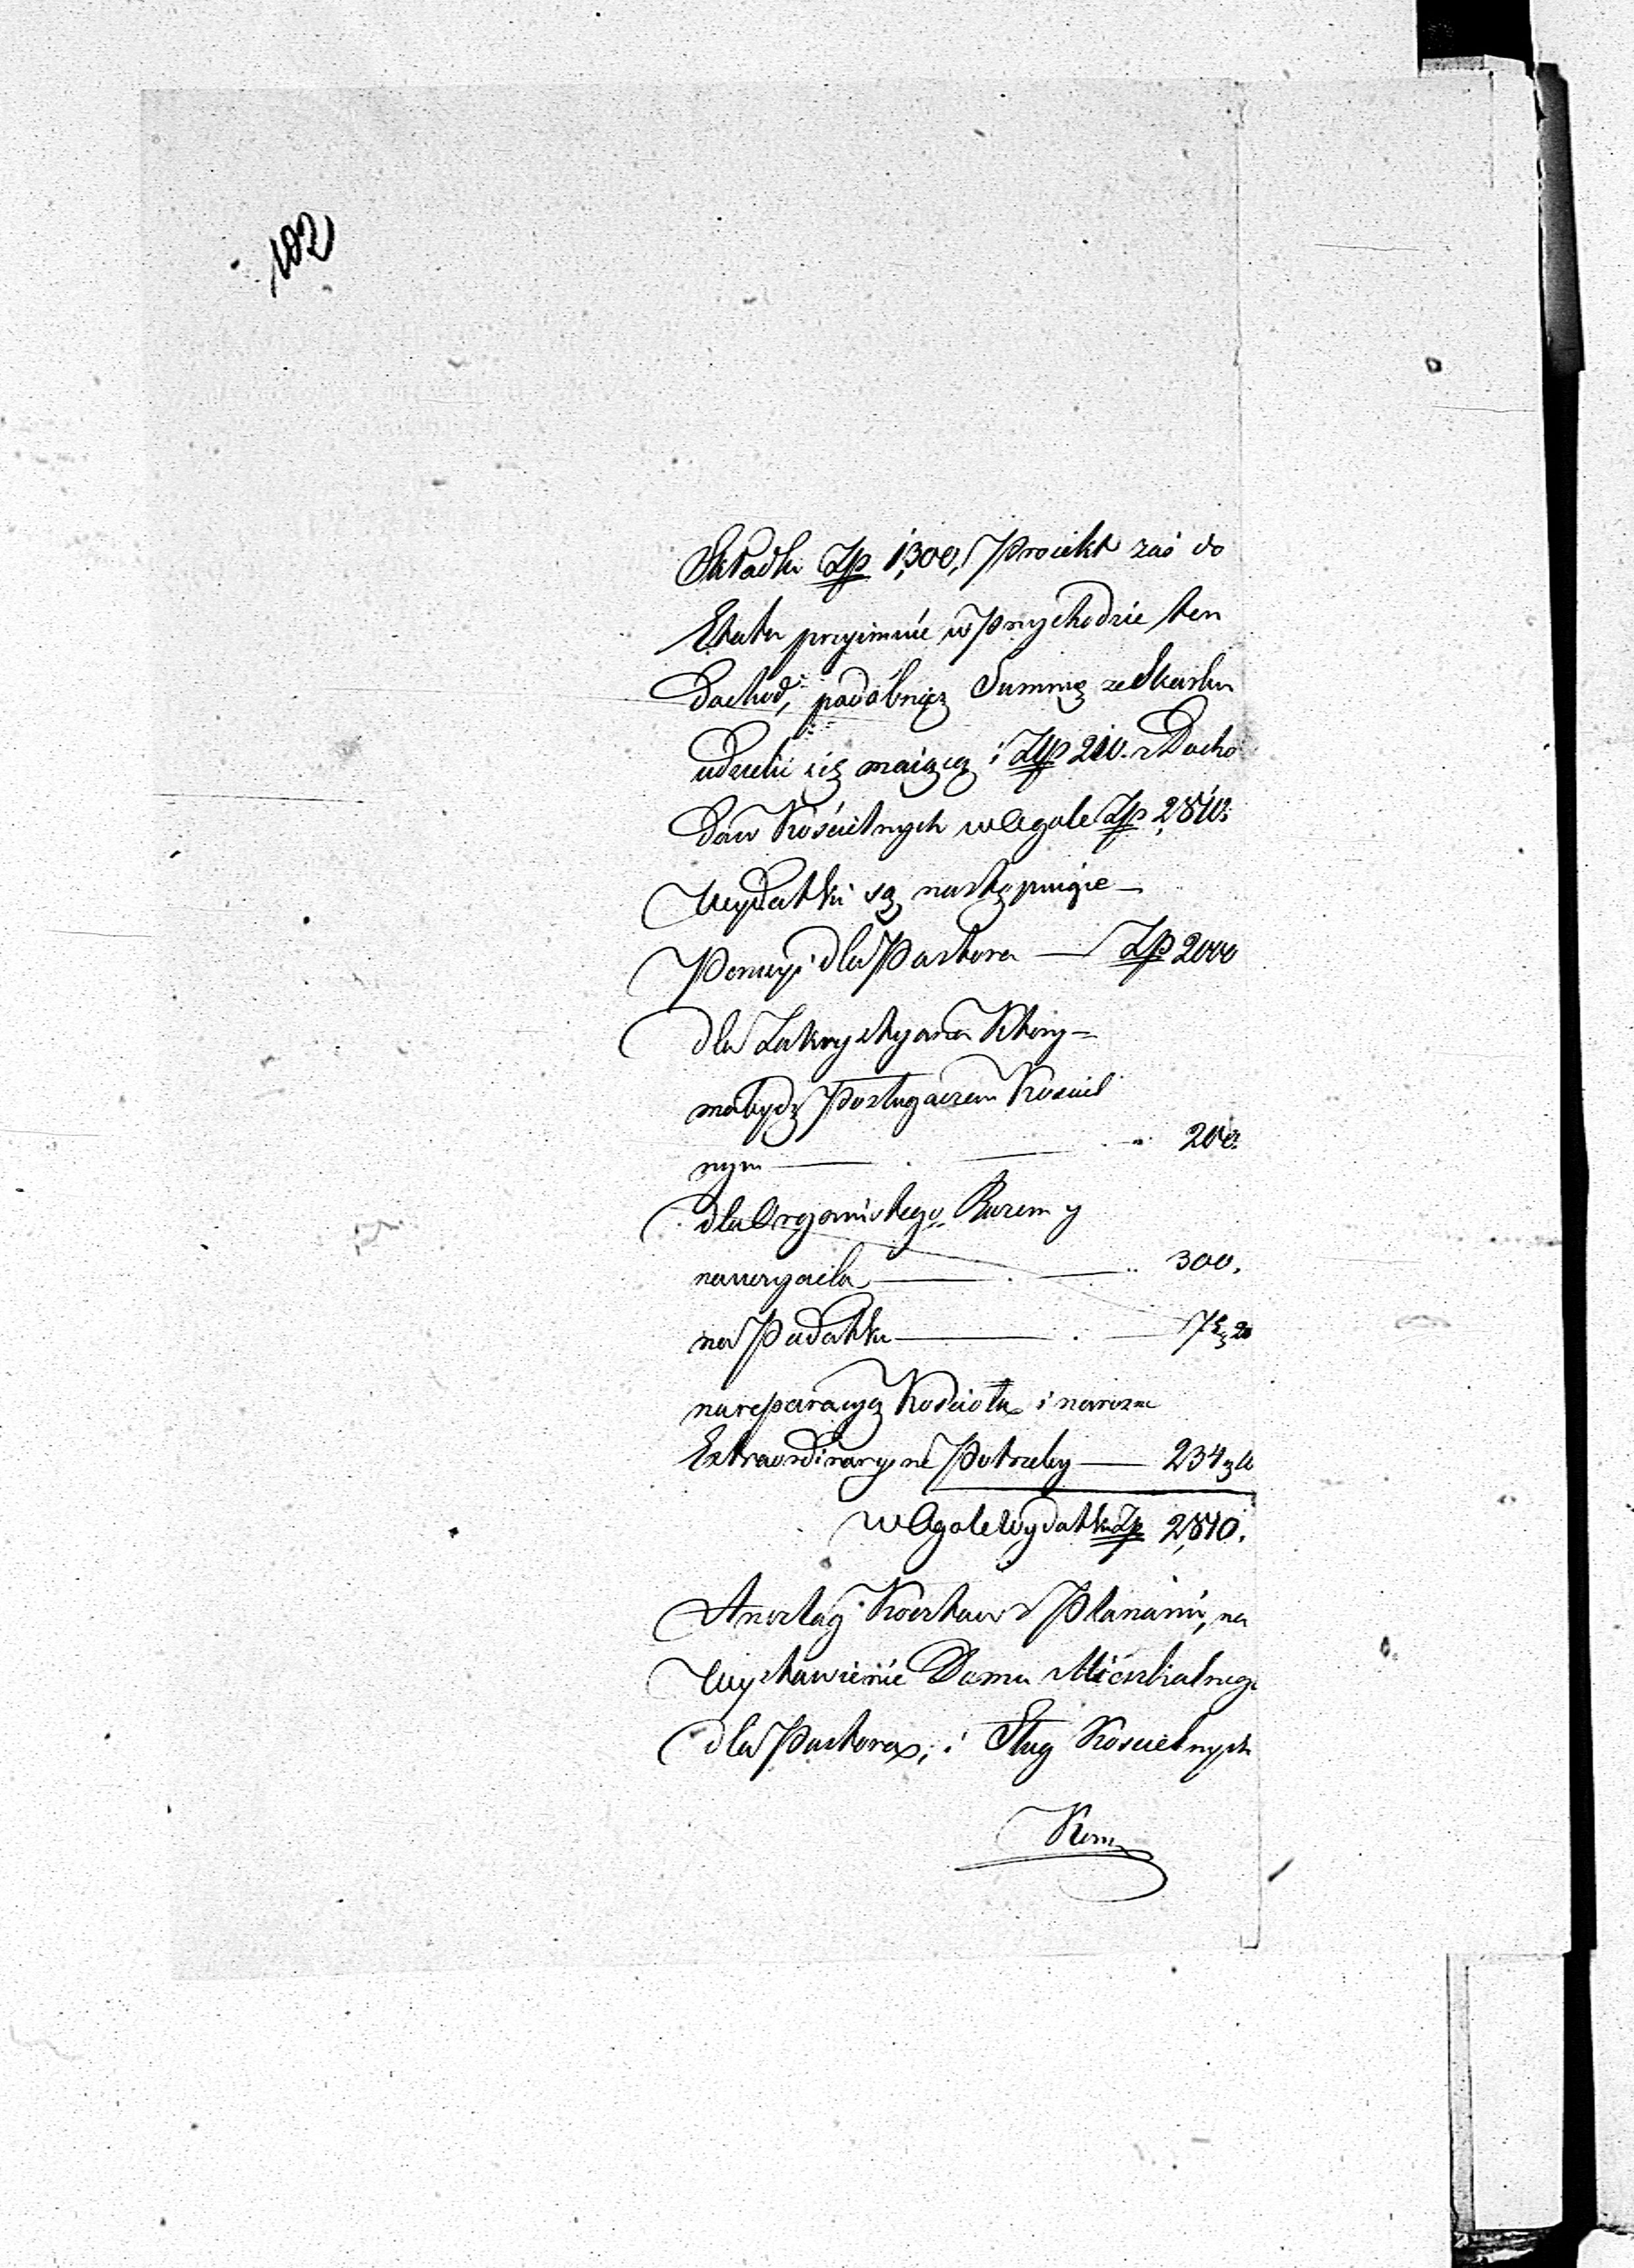 102
Składki Złp 1,300, Proiekt zaś do
Etatu przyimuie w Przychodzie ten
dochod, podobnąż Summę ze Skarbu
udzielić się maiącą i Złp 210. z Docho
dów Kościelnych w Ogole Złp 2,810.
Wydatki są następuiące —
Pensyi dla Pastora — Złp 2000
dla Zakrystyana Który =
ma bydz Posługaczem Kościel
nym — — " 200.
dla Organistego Razem y
nauczyciela — — " 300.
na Podatku — — 75,20
na reparacyą Kościoła i na rożne
Extraordynaryine Potrzeby — 234,10
w Ogole Wydatku Złp 2,810.
Anszlag Kosztow z Planami, na
Wystawienie Domu Mieszkalnego
dla Pastora, i Sług Koscielnych
Kom